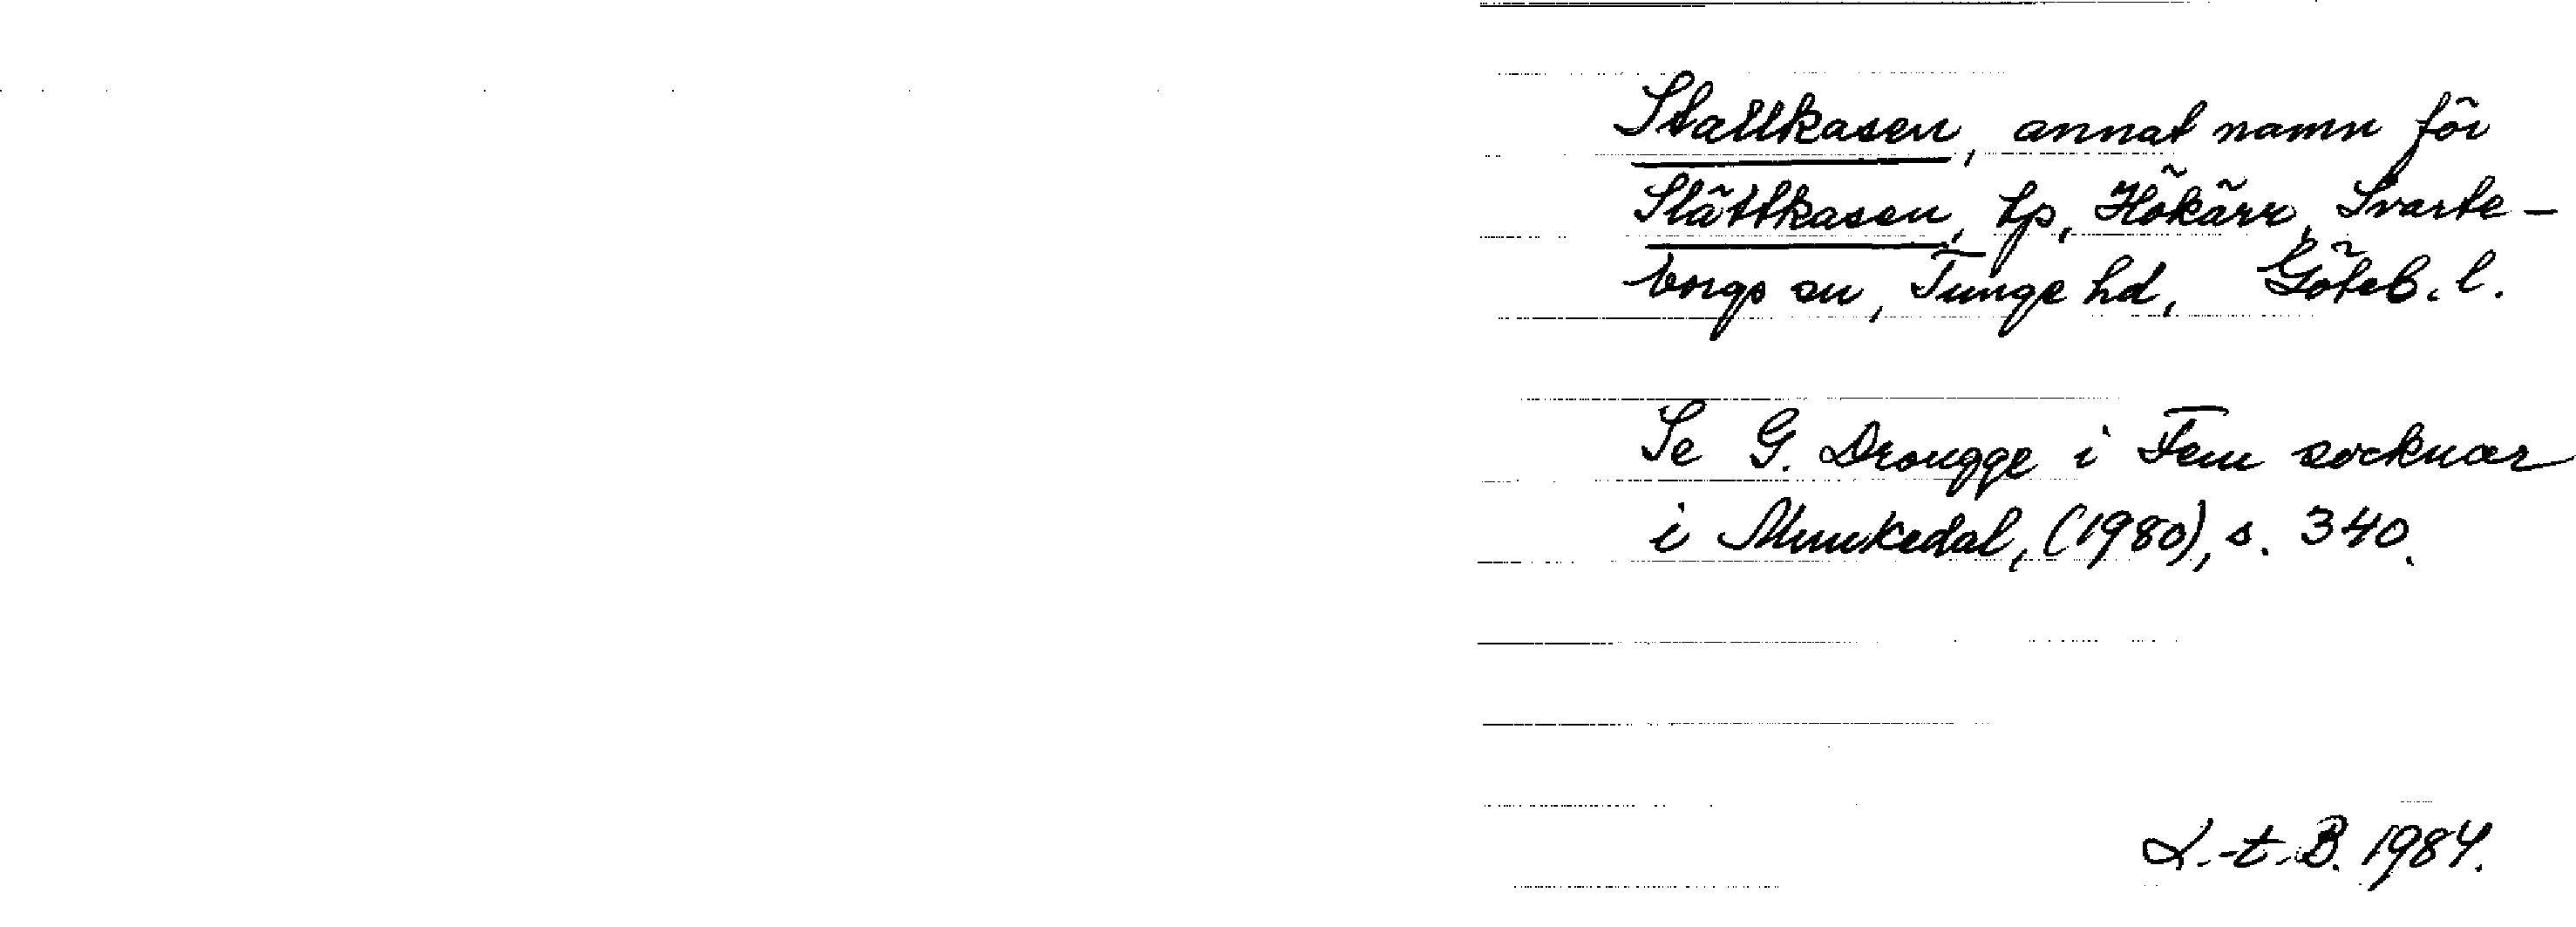 Stallkasen, annat namn för
Slättkasen, tp, Hökärr, Svarte-
borgs sn, Tunge hd, Göteb. l.
Se G. Drougge i Fem socknar
i Munkedal, (1980), s. 340.
L.-t. B. 1984.